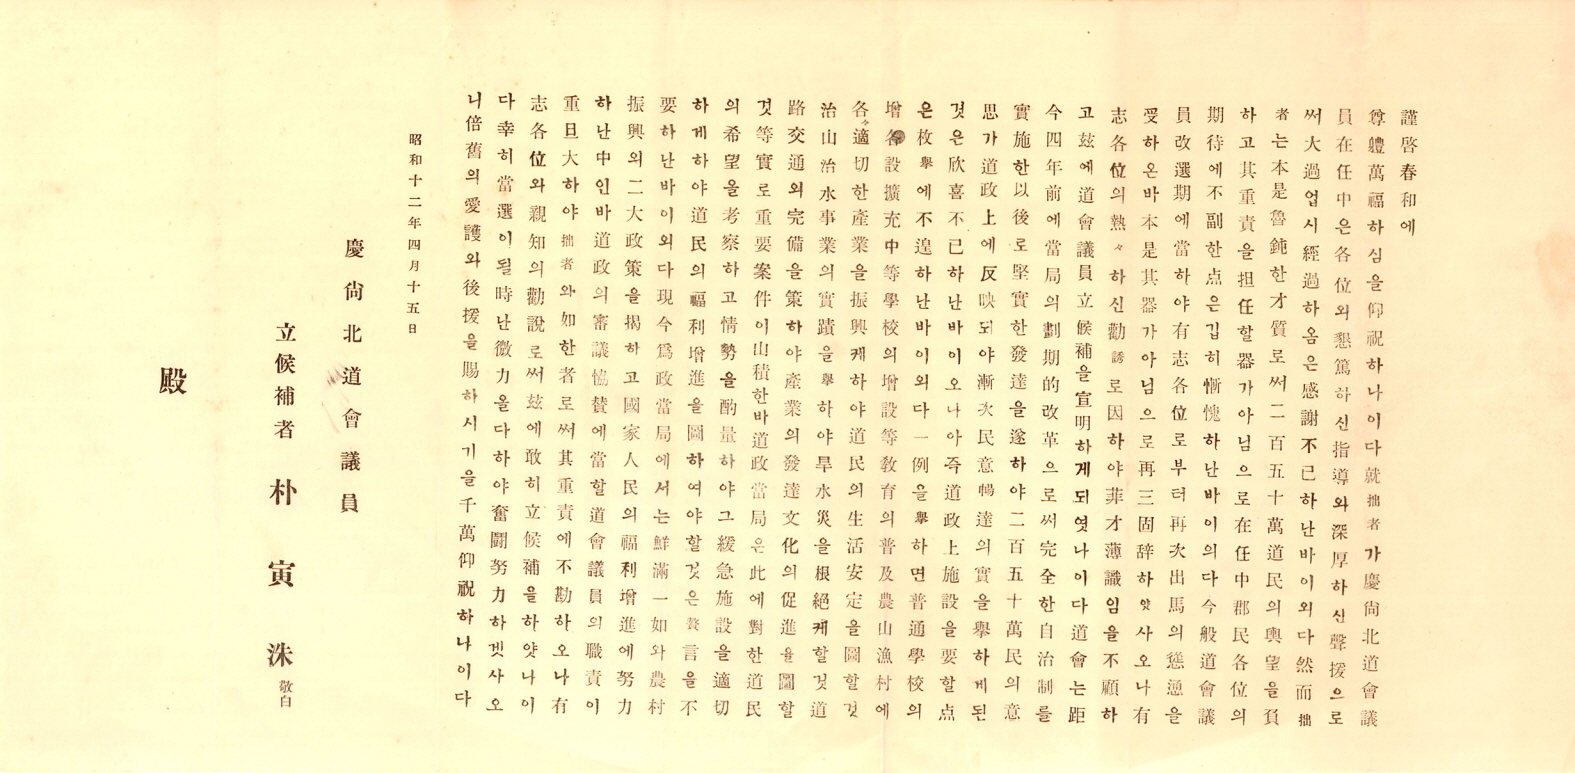 謹啓春和에
尊軆萬福하심을仰祝하나이다就拙者가慶尙北道會議
員在任中은各位의懇篤하신指導와深厚하신聲援으로
써大過업시經過하옴은感謝不已하난바이외다然而拙
者는本是魯鈍한才質로써二百五十萬道民의輿望을負
하고其重責을担任할器가아님으로在任中郡民各位의
期待에不副한点은깁히慚愧하난바이의다今般道會議
員改選期에當하야有志各位로부터再次出馬의慫慂을
受하온바本是其器가아님으로再三固辞하얏사오나有
志各位의熱々하신勸誘로因하야菲才薄識임을不顧하
고玆에道會議員立候補을宣明하게되엿나이다道會는距
今四年前에當局의劃期的改革으로써完全한自治制를
實施한以後로堅實한發達을遂하야二百五十萬民의意
思가道政上에反映되야漸次民意暢達의實을擧하게된
것은欣喜不已하난바이오나아즉道政上施設을要할点
은枚擧에不遑하난바이외다一例을擧하면普通學校의
增各設擴充中等學校의增設等敎育의普及農山漁村에
各々適切한產業을振興케하야道民의生活安定을圖할것
治山治水事業의實蹟을擧하야旱水災을根絕케할것道
路交通의完備을策하야產業의發達文化의促進을圖할
것等實로重要案件이山積한바道政當局은此에對한道民
의希望을考察하고情勢을酌量하야그緩急施設을適切
하게하야道民의福利增進을圖하여야할것은贅言을不
要하난바이외다現今爲政當局에서는鮮滿一如와農村
振興의二大政策을揭하고國家人民의福利增進에努力
하난中인바道政의審議協贊에當할道會議員의職責이
重且大하야拙者와如한者로써其重責에不勘하오나有
志各位와親知의勸說로써玆에敢히立候補을하얏나이
다幸히當選이될時난微力을다하야奮鬪努力하겟사오
니倍舊의愛護와後援을賜하시기을千萬仰祝하나이다
昭和十二年四月十五日
慶尙北道會議員
立候補者 朴寅洙 敬白
殿